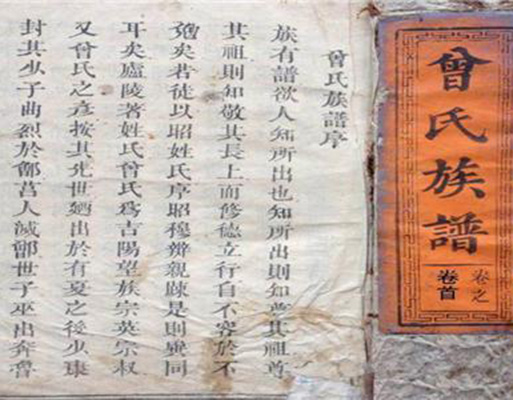 曾氏族譜
卷之
卷首
曾氏族譜序
族有譜欲人知所出也知所出則知尊其祖尊
其祖則知敬其長上而修德立行自不窮於不
矣若徒以昭姓氏序昭穆辨親踈是則異同
耳矣廬陵著姓氏曾氏為吉陽望族宗英宗叔
又曾氏之彥按其先世廼出於有夏之後少康
封其少子曲烈於鄫莒人滅鄫世子巫出奔魯